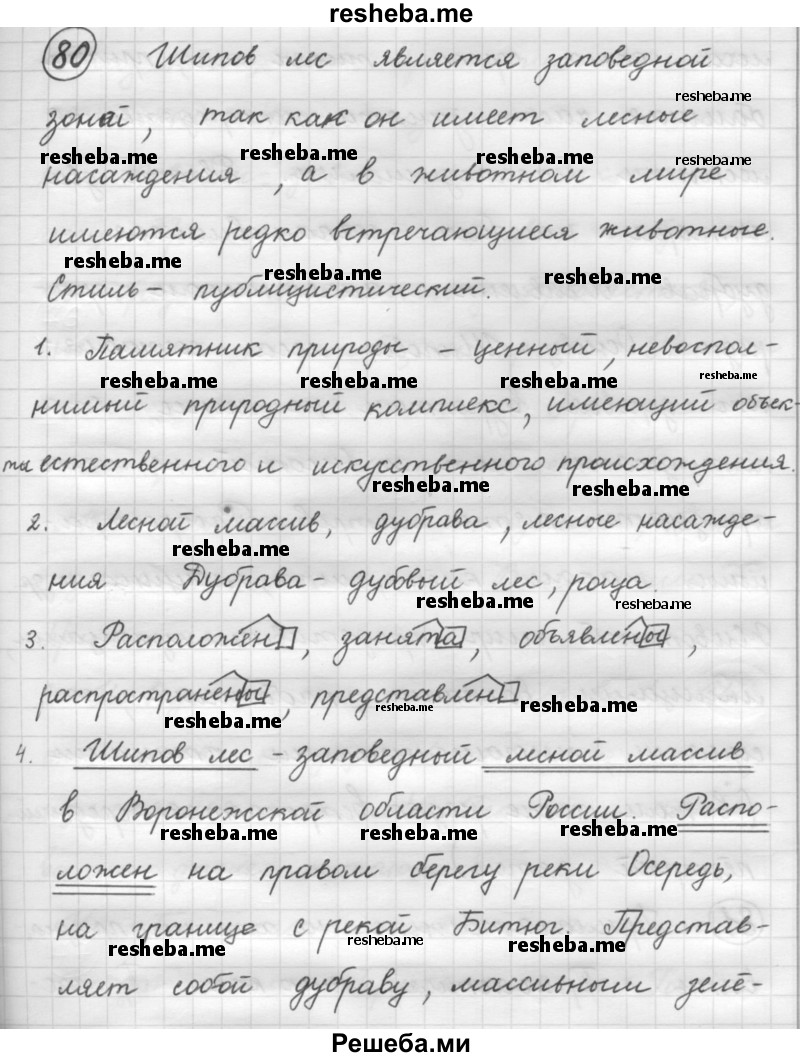 resheba.me
80 Шипов лес является заповедной
resheba.me
зоной, так как он имеет лесные
resheba.me resheba.me resheba.me resheba.me
насаждения, а в животном мире
имеются редко встречающиеся животные.
resheba.me resheba.me resheba.me
Стиль – публицистический.
1. Памятник природы – ценный, невоспол-
resheba.me resheba.me resheba.me resheba.me
нимый природный комплекс, имеющий объек-
ты естественного и искусственного происхождения.
resheba.me resheba.me
2. Лесной массив, дубрава, лесные насажде-
resheba.me
ния Дубрава – дубовый лес, роща.
resheba.me resheba.me
3. Расположен, занята, объявлены,
распространены, представлен
resheba.me resheba.me resheba.me
4. Шипов лес – заповедный лесной массив
в Воронежской области России. Распо-
resheba.me resheba.me resheba.me
ложен на правом берегу реки Осередь,
на границе с рекой Битюг. Представ-
resheba.me resheba.me resheba.me
ляет собой дубраву, массивными зелё-
Решеба.ми